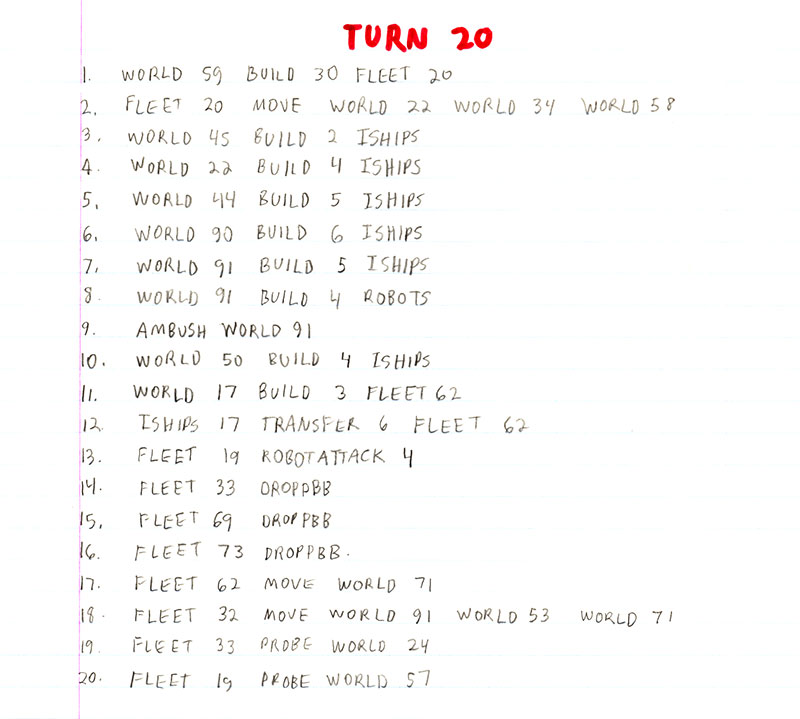 TURN 20
1. WORLD 59 BUILD 30 FLEET 20
2. FLEET 20 MOVE WORLD 22 WORLD 34 WORLD 58
3. WORLD 45 BUILD 2 ISHIPS
4. WORLD 22 BUILD 4 ISHIPS
5. WORLD 44 BUILD 5 ISHIPS
6. WORLD 90 BUILD 6 ISHIPS
7. WORLD 91 BUILD 5 ISHIPS
8. WORLD 91 BUILD 4 ROBOTS
9. AMBUSH WORLD 91
10. WORLD 50 BUILD 4 ISHIPS
11. WORLD 17 BUILD 3 FLEET 62
12 ISHIPS 17 TRANSFER 6 FLEET 62
13. FLEET 19 ROBOTATTACK 4
14. FLEET 33 DROPPBB
15. FLEET 69 DROPPBB
16. FLEET 73 DROPPBB.
17. FLEET 62 MOVE WORLD 71
18. FLEET 32 MOVE WORLD 91 WORLD 53 WORLD 71
19. FLEET 33 PROBE WORLD 24
20. FLEET 19 PROBE WORLD 57